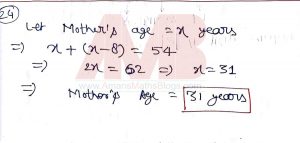 24
Let Mother's age = x years
⇒ x + (x-8) = 54
⇒ 2x = 62 ⇒ x = 31
⇒ Mother's Age = 31 years